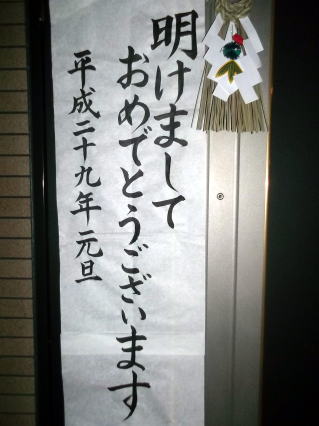 明けまして
おめでとうございます
平成二十九年元旦